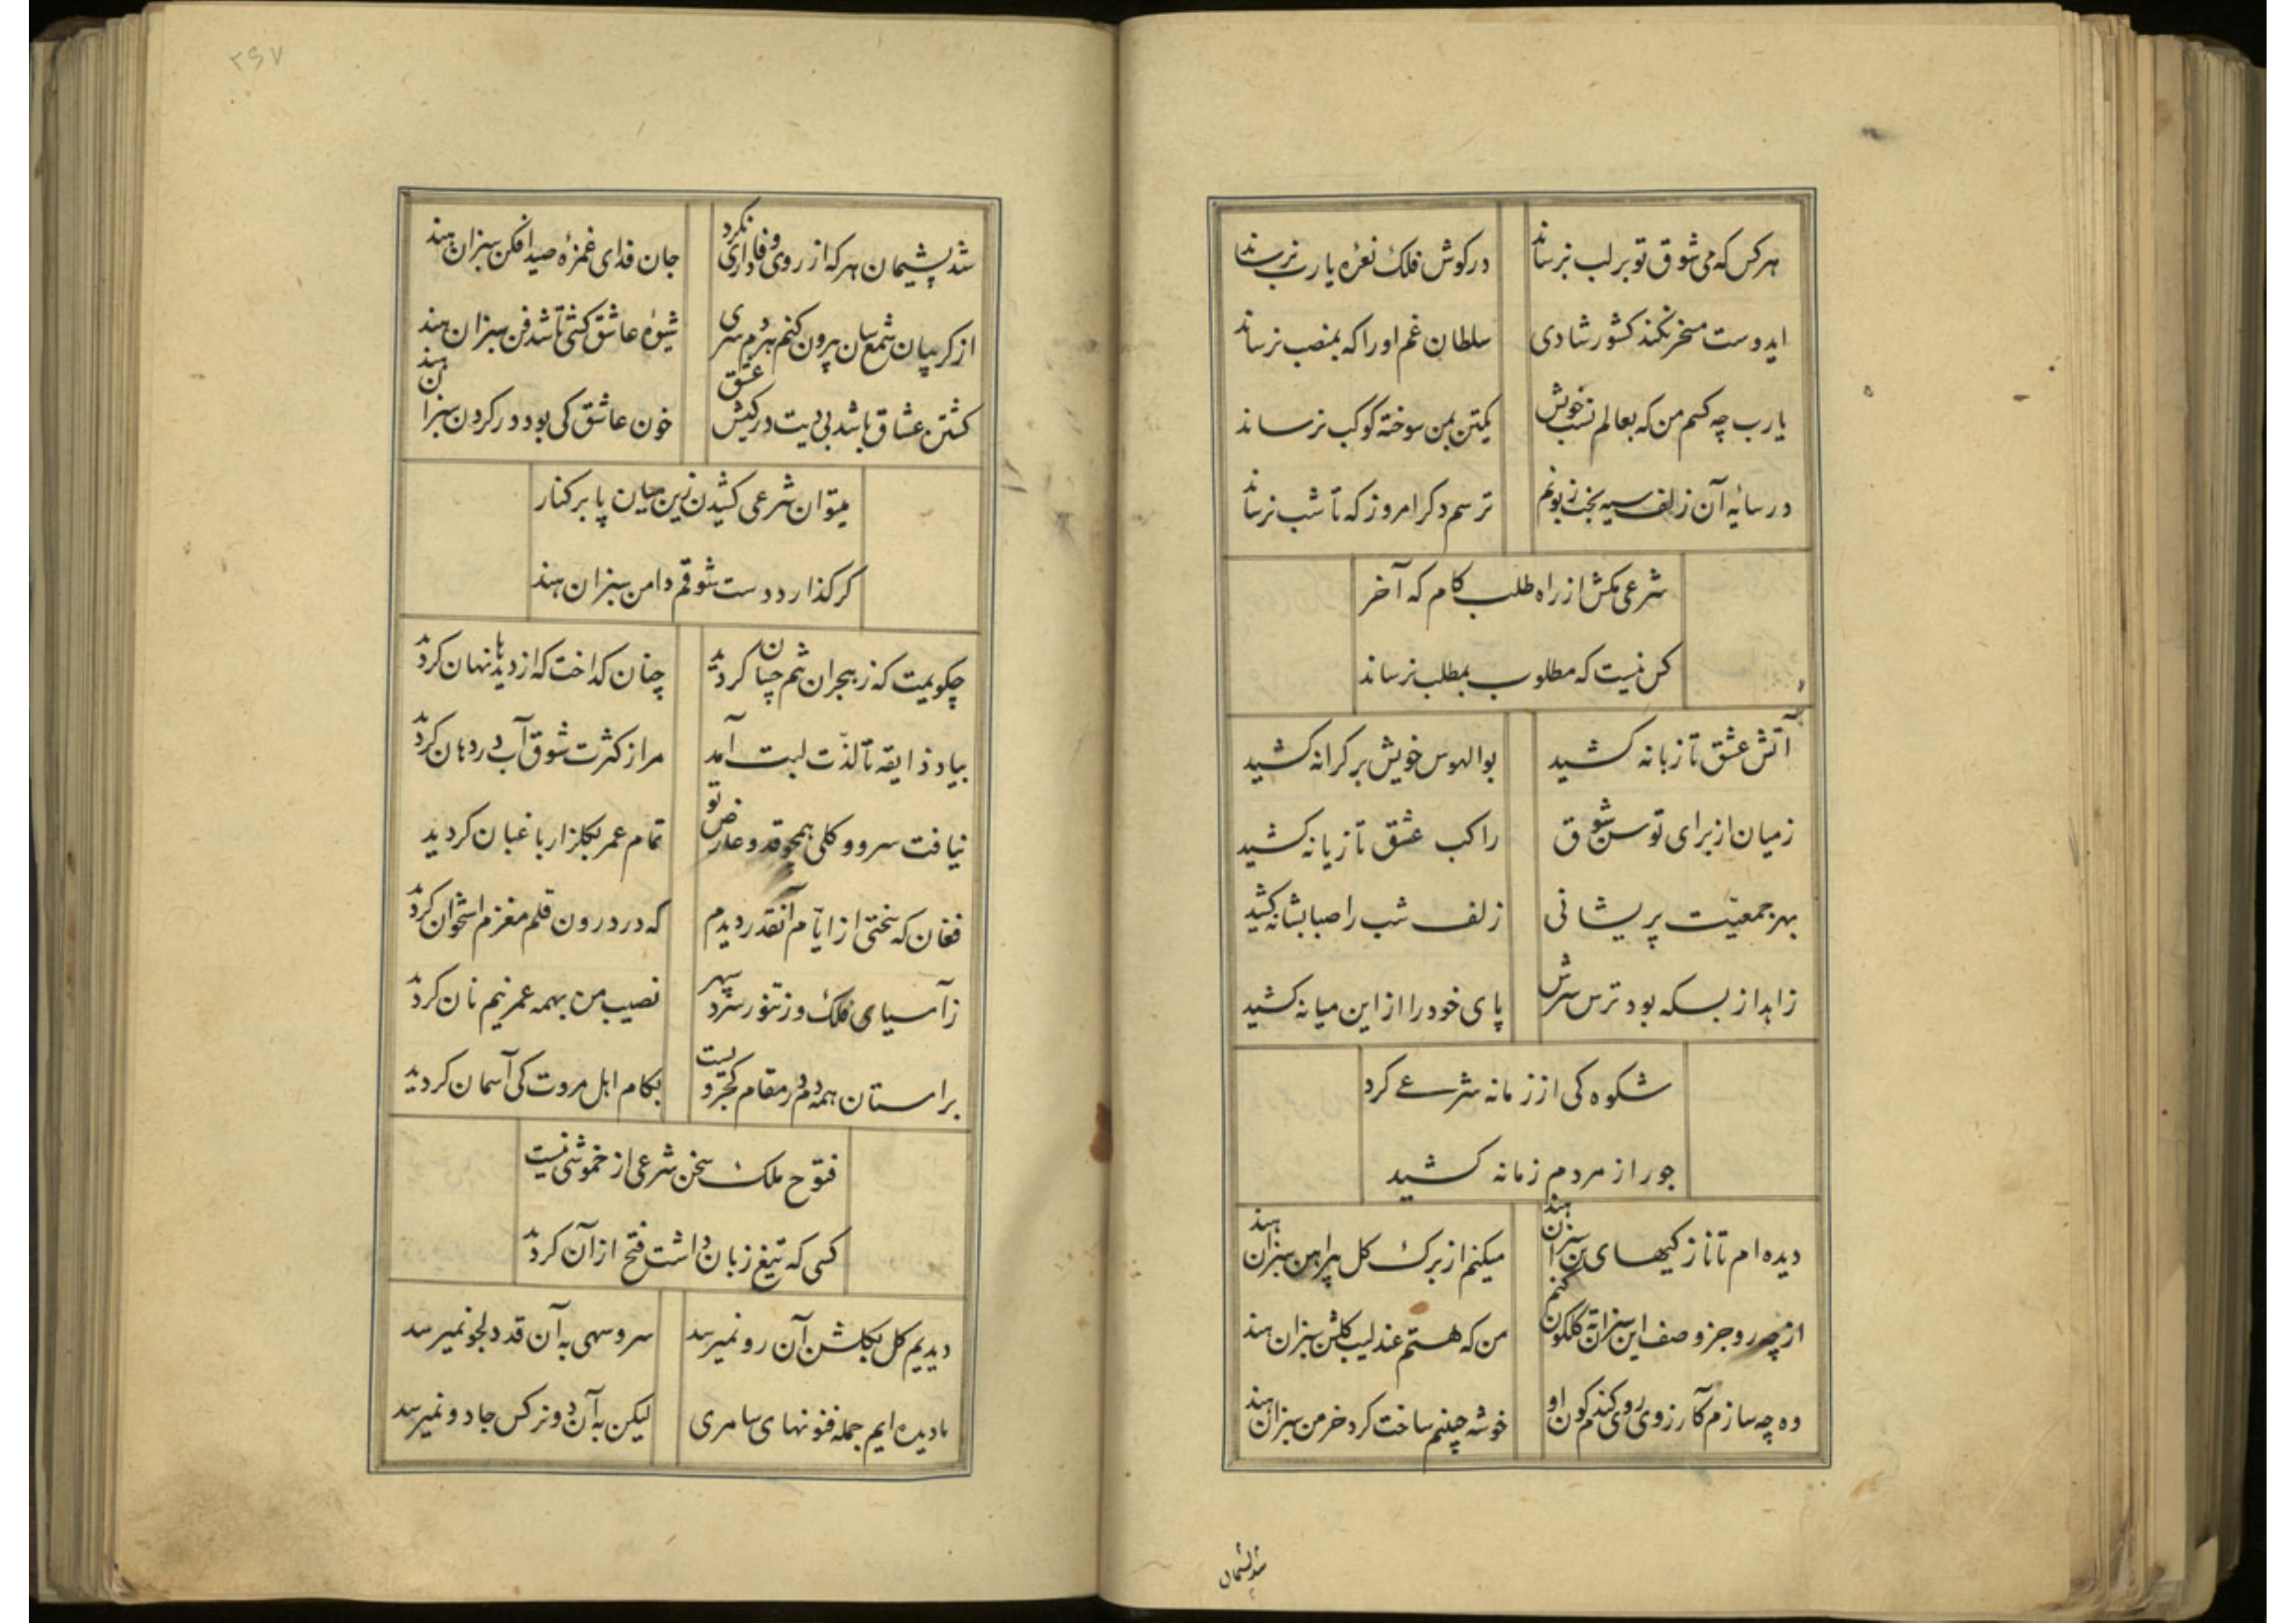 هرکس که می شوق تو بر لب نرساند درکوش فلک نعره یارب نرساند
ایدوست مسخر نکند کشور شادی سلطان غم او را که بمنصب نرساند
یارب چه کسم من که بعالم نسب خویش یکتن بمن سوخته کوکب نرساند
در سایهٔ آن زلف سیه بخت زبونم ترسم دکر امروز که تا شب نرساند
شرعی مکش از راه طلب کام که آخر
کس نیست که مطلوب بمطلب نرساند
آتش عشق تا زبانه کشید بوالهوس خویش بر کرانه کشید
زمیان از برای توسن شوق راکب عشق تازیانه کشید
بهر جمعیّت پریشانی زلف شب را صبا بشانه کشید
زاهد از بسکه بود ترس سرش پای خود را از این میانه کشید
شکوه کی از زمانه شرعی کرد
جور از مردم زمانه کشید
دیده ام تا نازکیهای تن سبزان هند میکنم از برک کل پیراهن سبزان هند
از چه رو جز وصف این سبزان ته کلکون کنم من که هستم عندلیب کلشن سبزان هند
وه چه سازم کآرزوی روی کندم کون او خوشه چینم ساخت کرد خرمن سبزان هند
شد پشیمان
۲۶۷
شد پشیمان هر که از روی وفاداری نکرد جان فدای غمزهٔ صید افکن سبزان هند
از کریبان شمع سان بیرون کنم هر دم سری شیوهٔ عاشق کشی تا شد فن سبزان هند
کشتن عشاق باشد بی دیت در کیش عشق خون عاشق کی بود در کردن سبزان هند
میتوان شرعی کشیدن زین میان پا بر کنار
کر کذارد دست شوقم دامن سبزان هند
چکویمت که ز هجران شم چسان کردید چنان کداخت که از دیدها نهان کردید
بیاد ذایقه تا لذّت لبت آمد مرا ز کثرت شوق آب در دهان کردید
نیافت سرو و کلی همچو قد و عارض تو تمام عمر بکلزار باغبان کردید
فغان که سختی از ایّام آنقدر دیدم که در درون قلم مغزم استخوان کردید
ز آسیای فلک وز تنور سرد سپهر نصیب من بهمه عمر نیم نان کردید
براستان همه دم در مقام کجرویست بکام اهل مروت کی آسمان کردید
فتوح ملک سخن شرعی از خموشی نیست
کسی که تیغ زبان داشت فتح از آن کردید
دیدیم کل بکلشن آن رو نمیرسد سرو سهی به آن قد دلجو نمیرسد
ما دیده ایم جمله فنونهای سامری لیکن به آن دو نرکس جادو نمیرسد